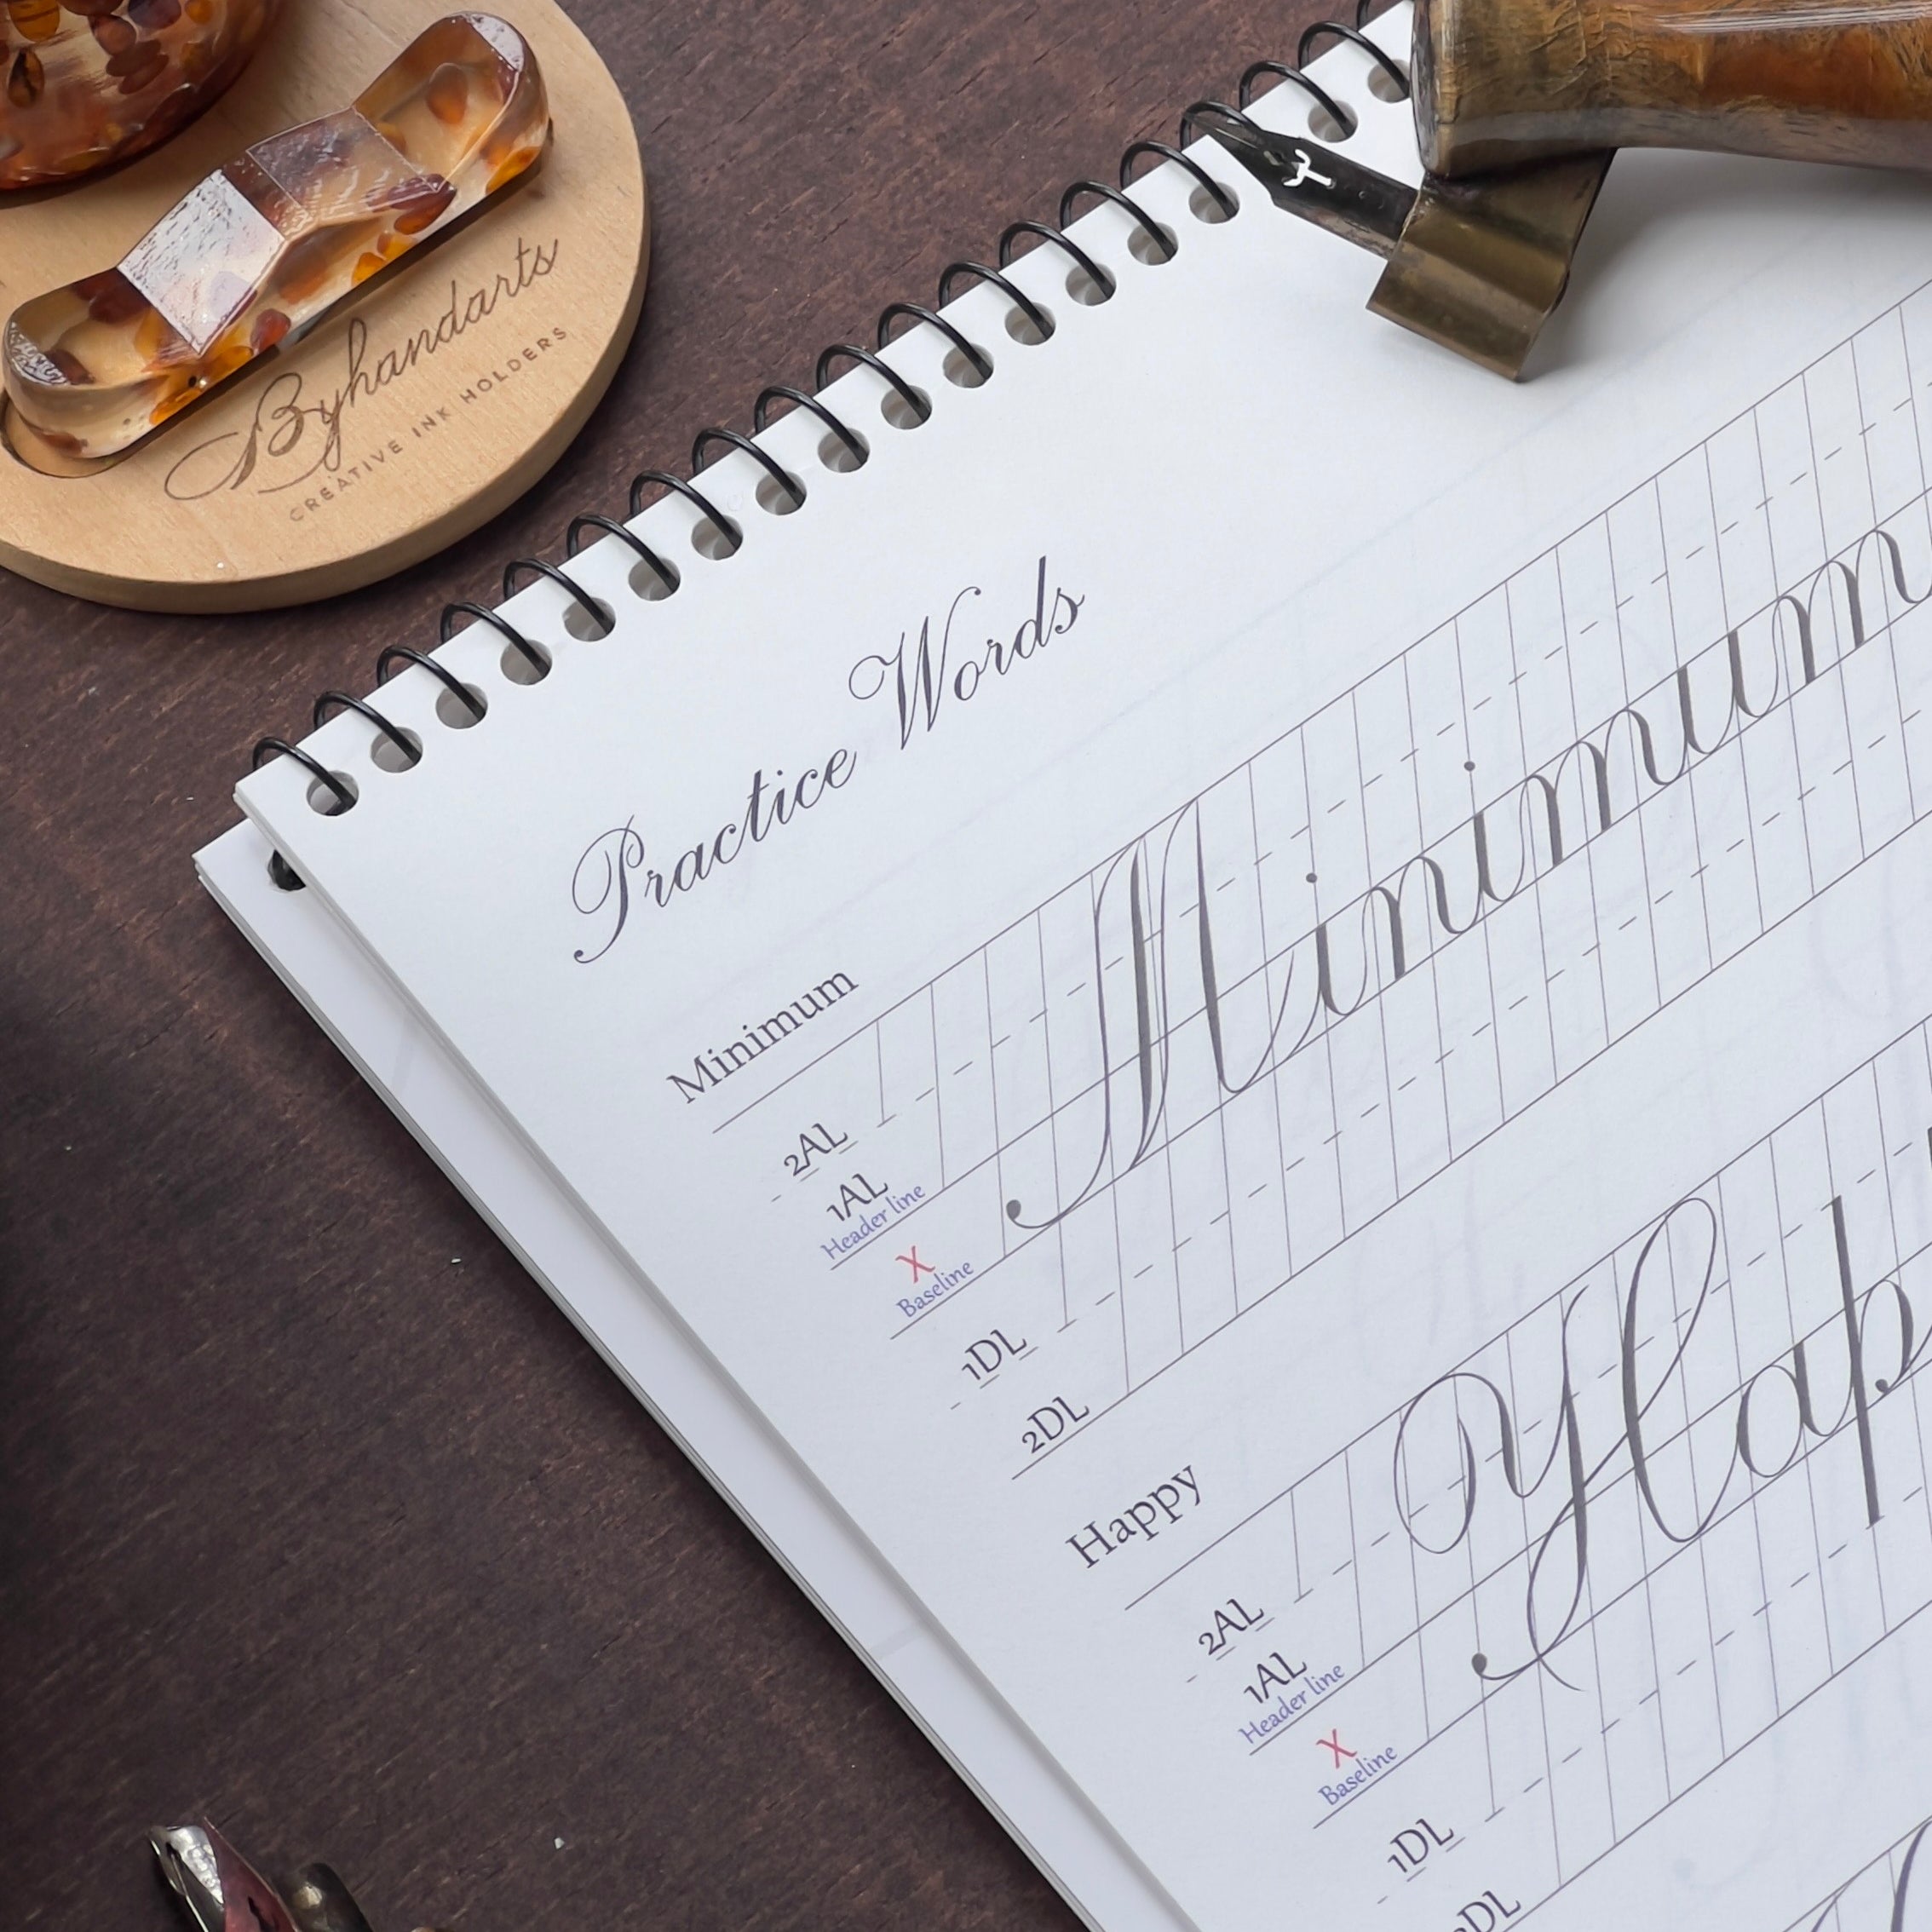 Byhandarts
CREATIVE INK HOLDERS
Practice Words
Minimum
2AL
1AL
Header line
X
Baseline
1DL
2DL
Minimum
Happy
2AL
1AL
Header line
X
Baseline
1DL
2DL
Hap